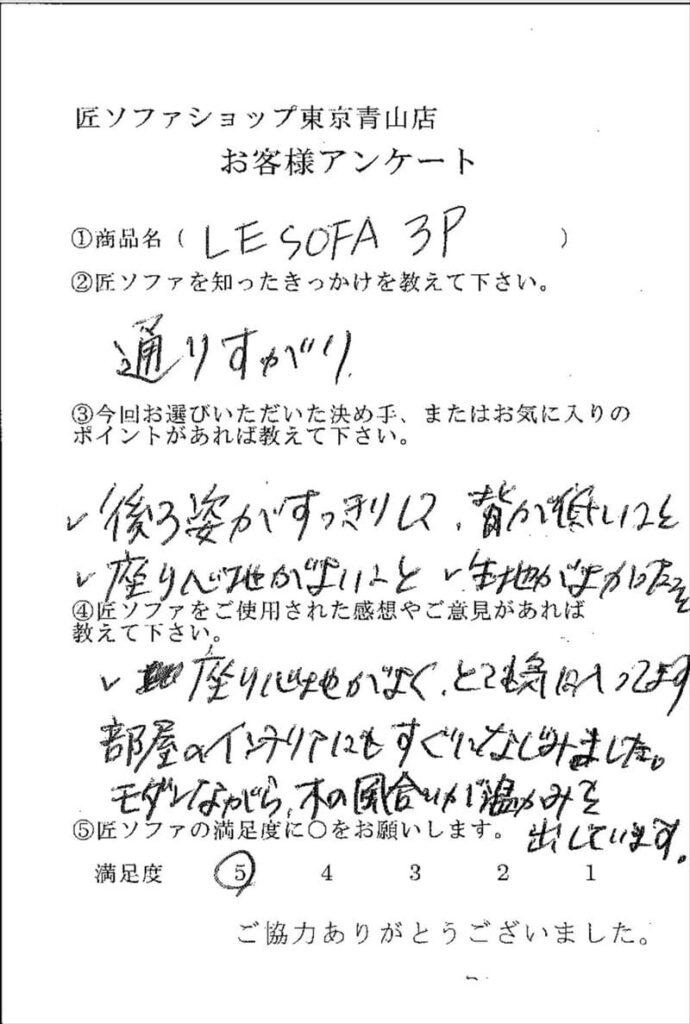 匠ソファショップ東京青山店
お客様アンケート
①商品名（ LE SOFA 3P ）
②匠ソファを知ったきっかけを教えて下さい。
通りすがり
③今回お選びいただいた決め手、またはお気に入りの
ポイントがあれば教えて下さい。
✓後ろ姿がすっきりして、背が低いこと
✓座り心地がよいこと ✓生地がよかったこと
④匠ソファをご使用された感想やご意見があれば
教えて下さい。
✓座り心地がよく、とても気に入ってます
部屋のインテリアにもすぐになじみました。
モダンながら、木の風合いが温かみを
出しています。
⑤匠ソファの満足度に○をお願いします。
満足度 5 4 3 2 1
ご協力ありがとうございました。